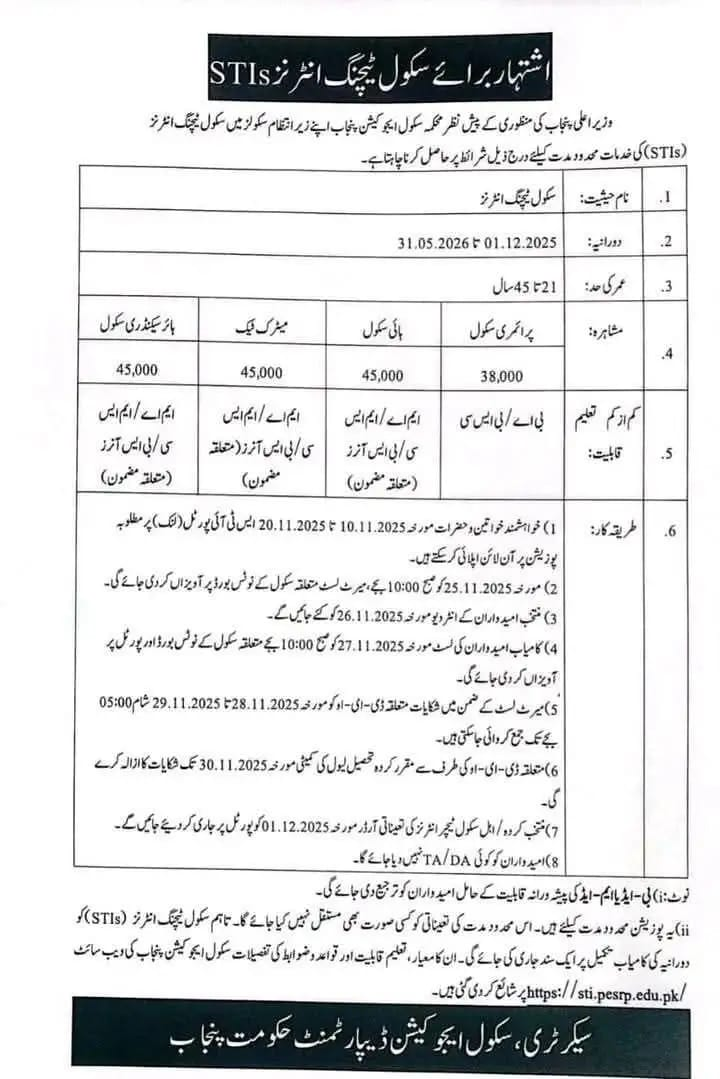 اشتہار برائے سکول ٹیچنگ انٹرنز STIs
وزیر اعلیٰ پنجاب کی منظوری کے پیش نظر محکمہ سکول ایجوکیشن پنجاب اپنے زیر انتظام سکولز میں سکول ٹیچنگ انٹرنز
(STIs) کی خدمات محدود مدت کیلئے درج ذیل شرائط پر حاصل کرنا چاہتا ہے۔
1. نام حیثیت: سکول ٹیچنگ انٹرنز
2. دورانیہ: 01.12.2025 تا 31.05.2026
3. عمر کی حد: 21 تا 45 سال
4. مشاہرہ: پرائمری سکول ہائی سکول میٹرک ٹیک ہائر سیکنڈری سکول
38,000 45,000 45,000 45,000
5. کم از کم تعلیم قابلیت: بی اے/بی ایس سی
ایم اے/ایم ایس
سی/بی ایس آنرز
(متعلقہ مضمون)
ایم اے/ایم ایس
سی/بی ایس آنرز (متعلقہ
مضمون)
ایم اے/ایم ایس
سی/بی ایس آنرز
(متعلقہ مضمون)
6. طریقہ کار: 1) خواہشمند خواتین و حضرات مورخہ 10.11.2025 تا 20.11.2025 ایس ٹی آئی پورٹل (لنک) پر مطلوبہ
پوزیشن پر آن لائن اپلائی کر سکتے ہیں۔
2) مورخہ 25.11.2025 کو صبح 10:00 بجے، میرٹ لسٹ متعلقہ سکول کے نوٹس بورڈ پر آویزاں کر دی جائے گی۔
3) منتخب امیدواران کے انٹرویو مورخہ 26.11.2025 کو کئے جائیں گے۔
4) کامیاب امیدواران کی لسٹ مورخہ 27.11.2025 کو صبح 10:00 بجے متعلقہ سکول کے نوٹس بورڈ اور پورٹل پر
آویزاں کر دی جائے گی۔
5) میرٹ لسٹ کے ضمن میں شکایات متعلقہ ڈی-ای-او کو مورخہ 28.11.2025 تا 29.11.2025 شام 05:00
بجے تک جمع کروائی جا سکتی ہیں۔
6) متعلقہ ڈی-ای-او کی طرف سے مقرر کردہ تحصیل لیول کی کمیٹی مورخہ 30.11.2025 تک شکایات کا ازالہ کرے
گی۔
7) منتخب کردہ/اہل سکول ٹیچر انٹرنز کی تعیناتی آرڈر مورخہ 01.12.2025 کو پورٹل پر جاری کر دیئے جائیں گے۔
8) امیدواران کو کوئی TA/DA نہیں دیا جائے گا۔
نوٹ: i) بی-ایڈ یا ایم-ایڈ کی پیشہ ورانہ قابلیت کے حامل امیدواران کو ترجیع دی جائے گی۔
ii) یہ پوزیشن محدود مدت کیلئے ہیں۔ اس محدود مدت کی تعیناتی کو کسی صورت بھی مستقل نہیں کیا جائے گا۔ تاہم سکول ٹیچنگ انٹرنز (STIs) کو
دورانیہ کی کامیاب تکمیل پر ایک سند جاری کی جائے گی۔ ان کا معیار، تعلیم قابلیت اور قواعد و ضوابط کی تفصیلات سکول ایجوکیشن پنجاب کی ویب سائٹ
https://sti.pesrp.edu.pk/ پر شائع کر دی گئی ہیں۔
سیکرٹری، سکول ایجوکیشن ڈیپارٹمنٹ حکومت پنجاب